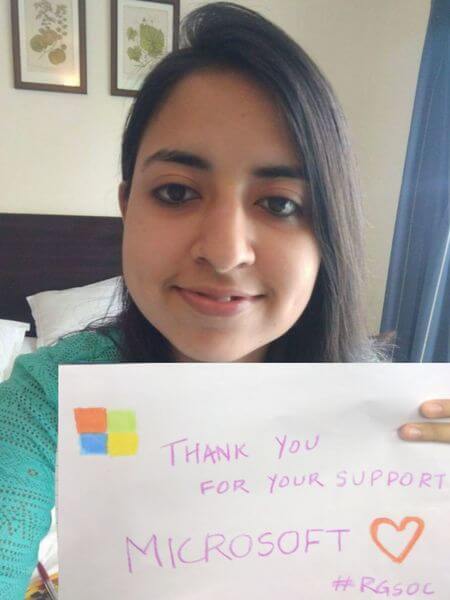 THANK YOU
FOR YOUR SUPPORT
MICROSOFT
#RGSOC